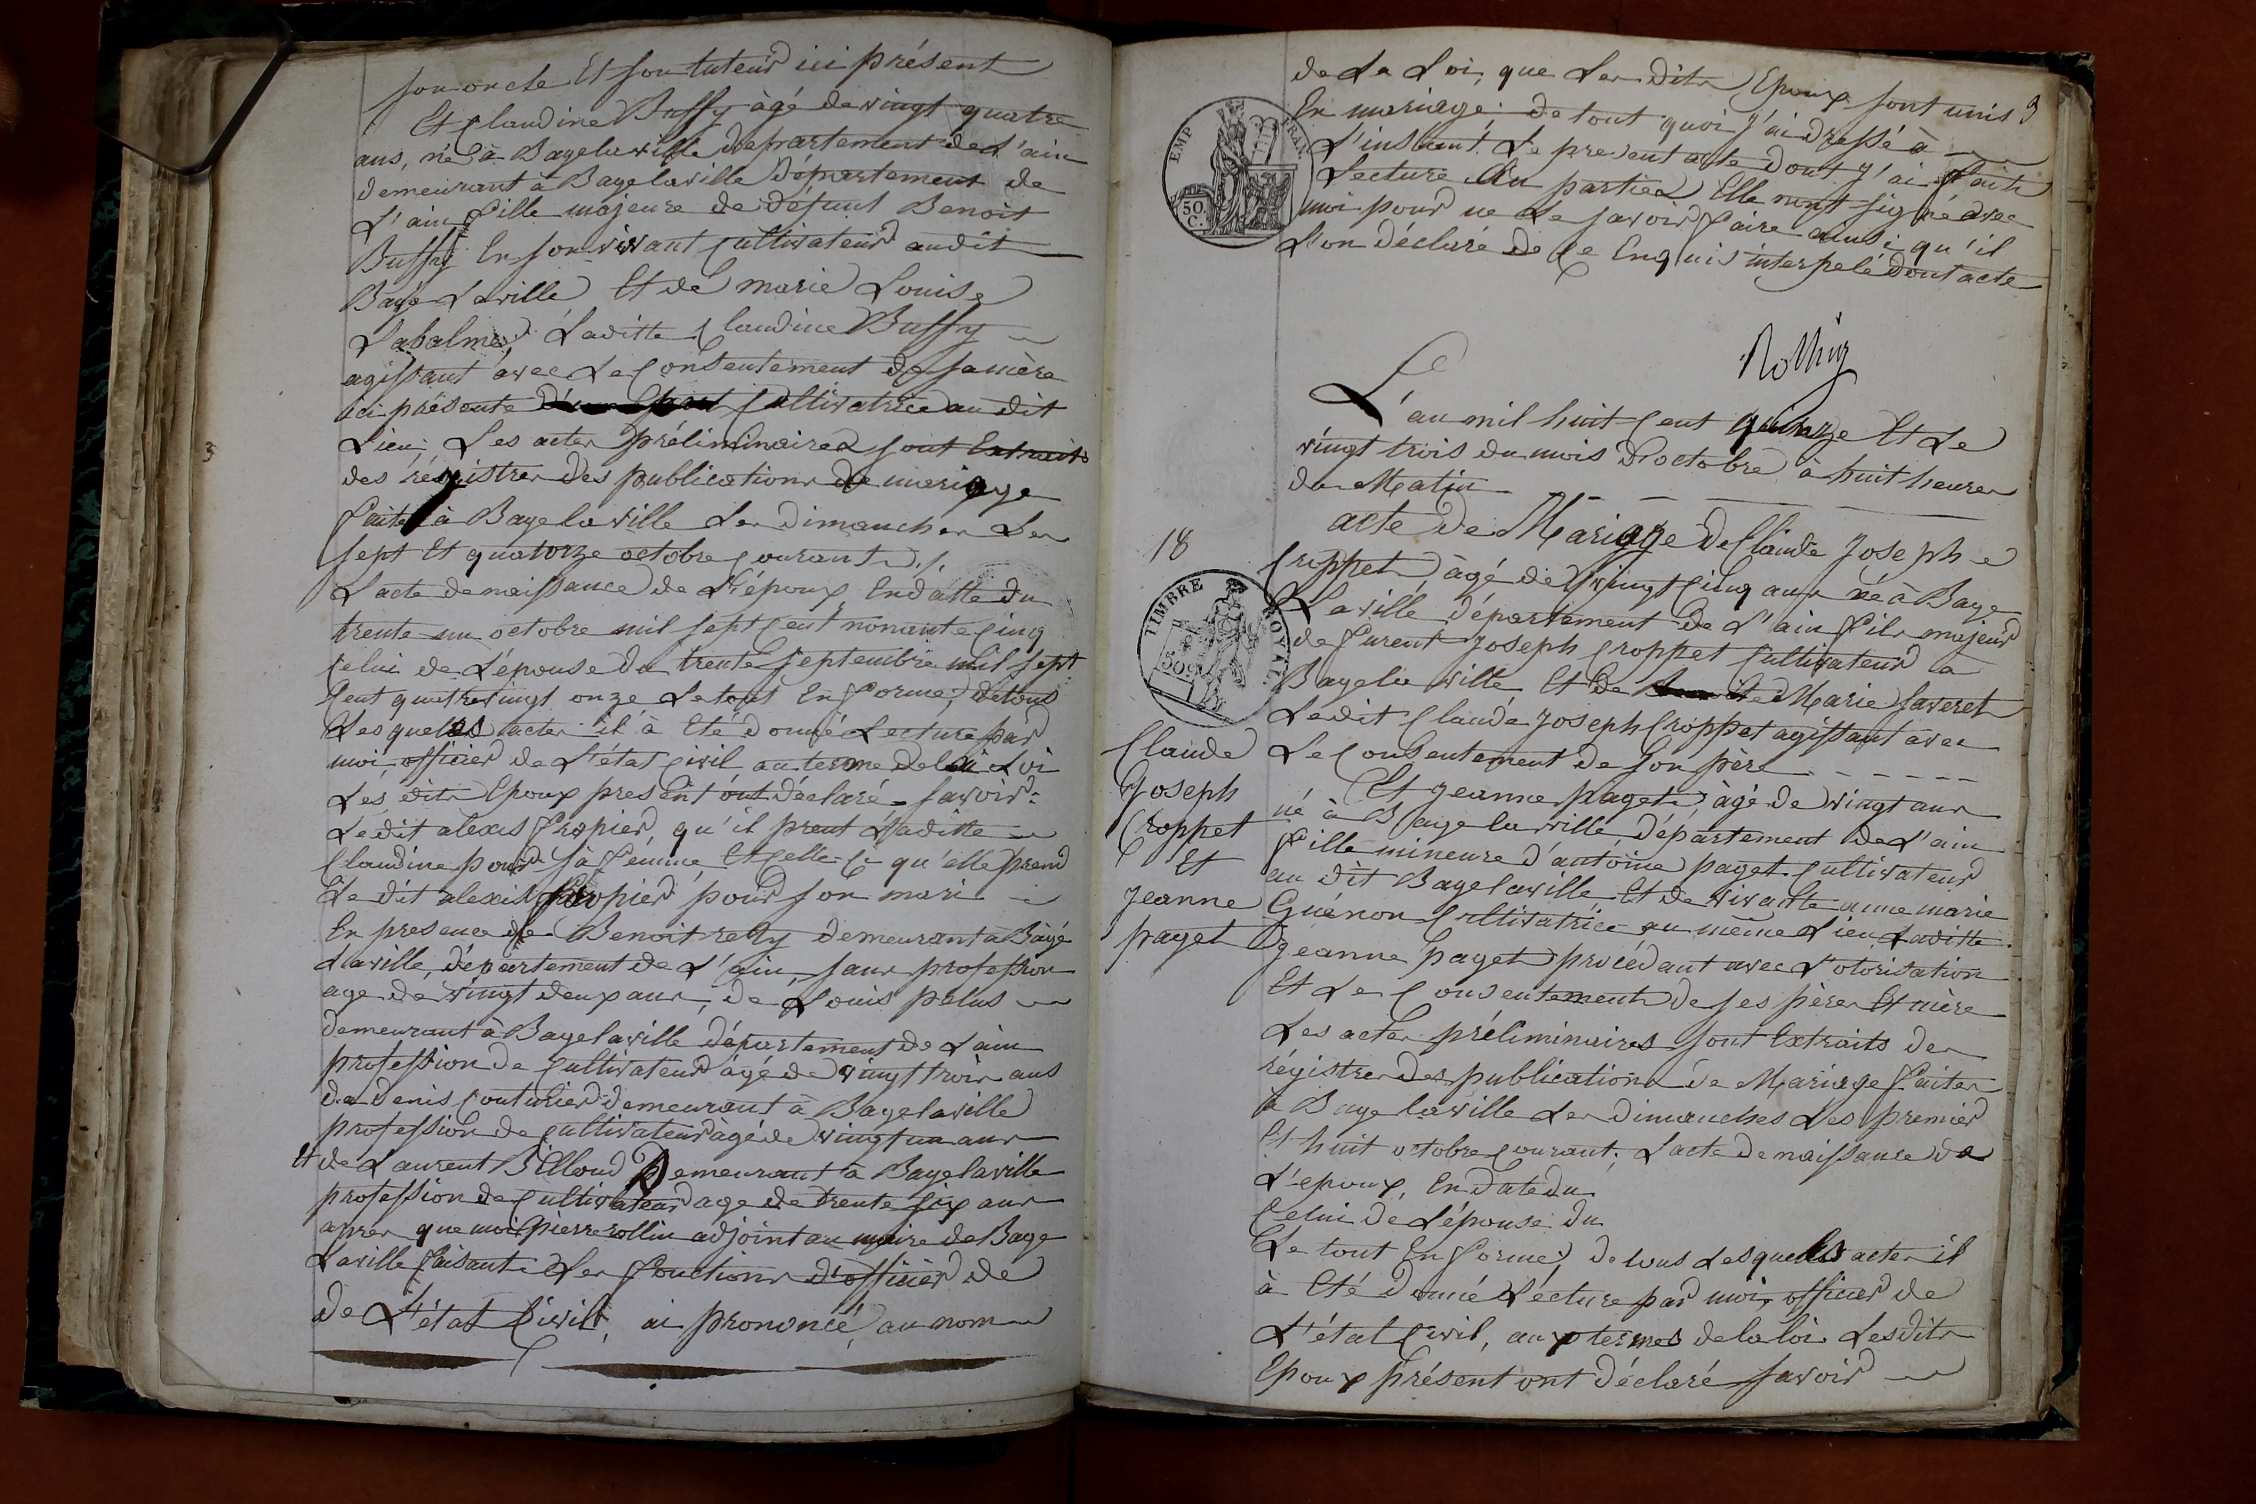 son oncle Et son tuteur ici présent
Et Claudine Buffy àgé de vingt quatre
ans, né à Bagelaville Département de L'ain
demeurant à Bagelaville Département de
L'ain fille majeure de défunt Benoit
Buffy En son vivant Cultivateur audit
Bage Laville Et de marie Louise
Labalme, Laditte Claudine Buffy
agissant avec Le Consentement de sa mère
ici présente Cultivatrice au dit
Lieu; Les actes préliminaires sont Extraits
des régistres des publications de mariage
faites à Bagelaville Les dimanches Les
sept Et quatorze octobre Courant ./.
L'acte de naissance de L'époux En datte du
trente un octobre mil sept Cent nonante Cinq
Celui de L'épouse du trente septembre mil sept
Cent quatrevingt onze Le tout En forme; de tous
Lesquels actes il à Eté donné Lecture par
moi officier de L'état Civil au terme de la Loi
Les dits Epoux present ont déclaré savoir:
Le dit alexis Propier qu'il prent Laditte
Claudine pour sà fémme Et Celle-Ci qu'elle prend
Le dit alexis Propier pour son mari
En presence de Benoit rety demeurant à Bagé
Laville, département de L'ain, sans profession
age de vingt deux ans, de Louis pelus
demeurant à Bagelaville département de L'ain
profession de Cultivateur àgé de vingt trois ans
de denis Couturier demeurant à Bagelaville
profession de Cultivateur àgé de vingt un ans
Et de Laurent Billoud Demeurant à Bagelaville
profession de Cultivateur age de trente six ans
apres que moi pierre rollin adjoint au maire de Bage
Laville faisant Les fonctions d'officier de
de L'état Civil, ai prononcé au nom
3
de La Loi, que Les dits Epoux sont unis
En mariage; de tout quoi j'ai dressé à
L'instant Le present acte dont j'ai fait
Lecture Au parties Elle nont signé avec
moi pour ne Le savoir faire ainsi qu'il
L'on déclaré de Ce Enquis interpelé dont acte
EMP FRAN
50
C.
Rollin
L'an mil huit Cent quinze Et Le
vingt trois du mois D'octobre a huit heures
du Matin
acte de Mariage de Claude Joseph
18
Croppet àgé de vingt Cinq ans né à Bage
Laville département de L'ain fils majeur
de Laurent Joseph Croppet Cultivateur a
Bagela ville Et de Marie Saveret
Ledit Claude Joseph Croppet agissant avec
Le Consentement de son père
TIMBRE ROYAL
50
Claude
Joseph
Croppet
Et
Jeanne
paget
Et jeanne paget àgé de vingt ans
né à Bage laville Département de L'ain
fille mineure d'antoine paget Cultivateur
au dit Bagelaville Et de vivante anne marie
Guénon Cultivatrice au même Lieu Laditte
jeanne paget procédant avec L'otorisation
Et Le Consentement de ses père Et mère
Les actes préliminaires sont Extraits des
régistres des publications de Mariage faites
à Bage laville Les dimanches Les premier
Et huit octobre Courant; L'acte de naissance de
L'epoux, En date du
Celui de L'épouse du
Le tout En forme; de tous Lesquels actes il
à Eté donné Lécture par moi officier de
L'état Civil, aux termes de la loi Lesdits
Epoux présent ont déclaré savoir